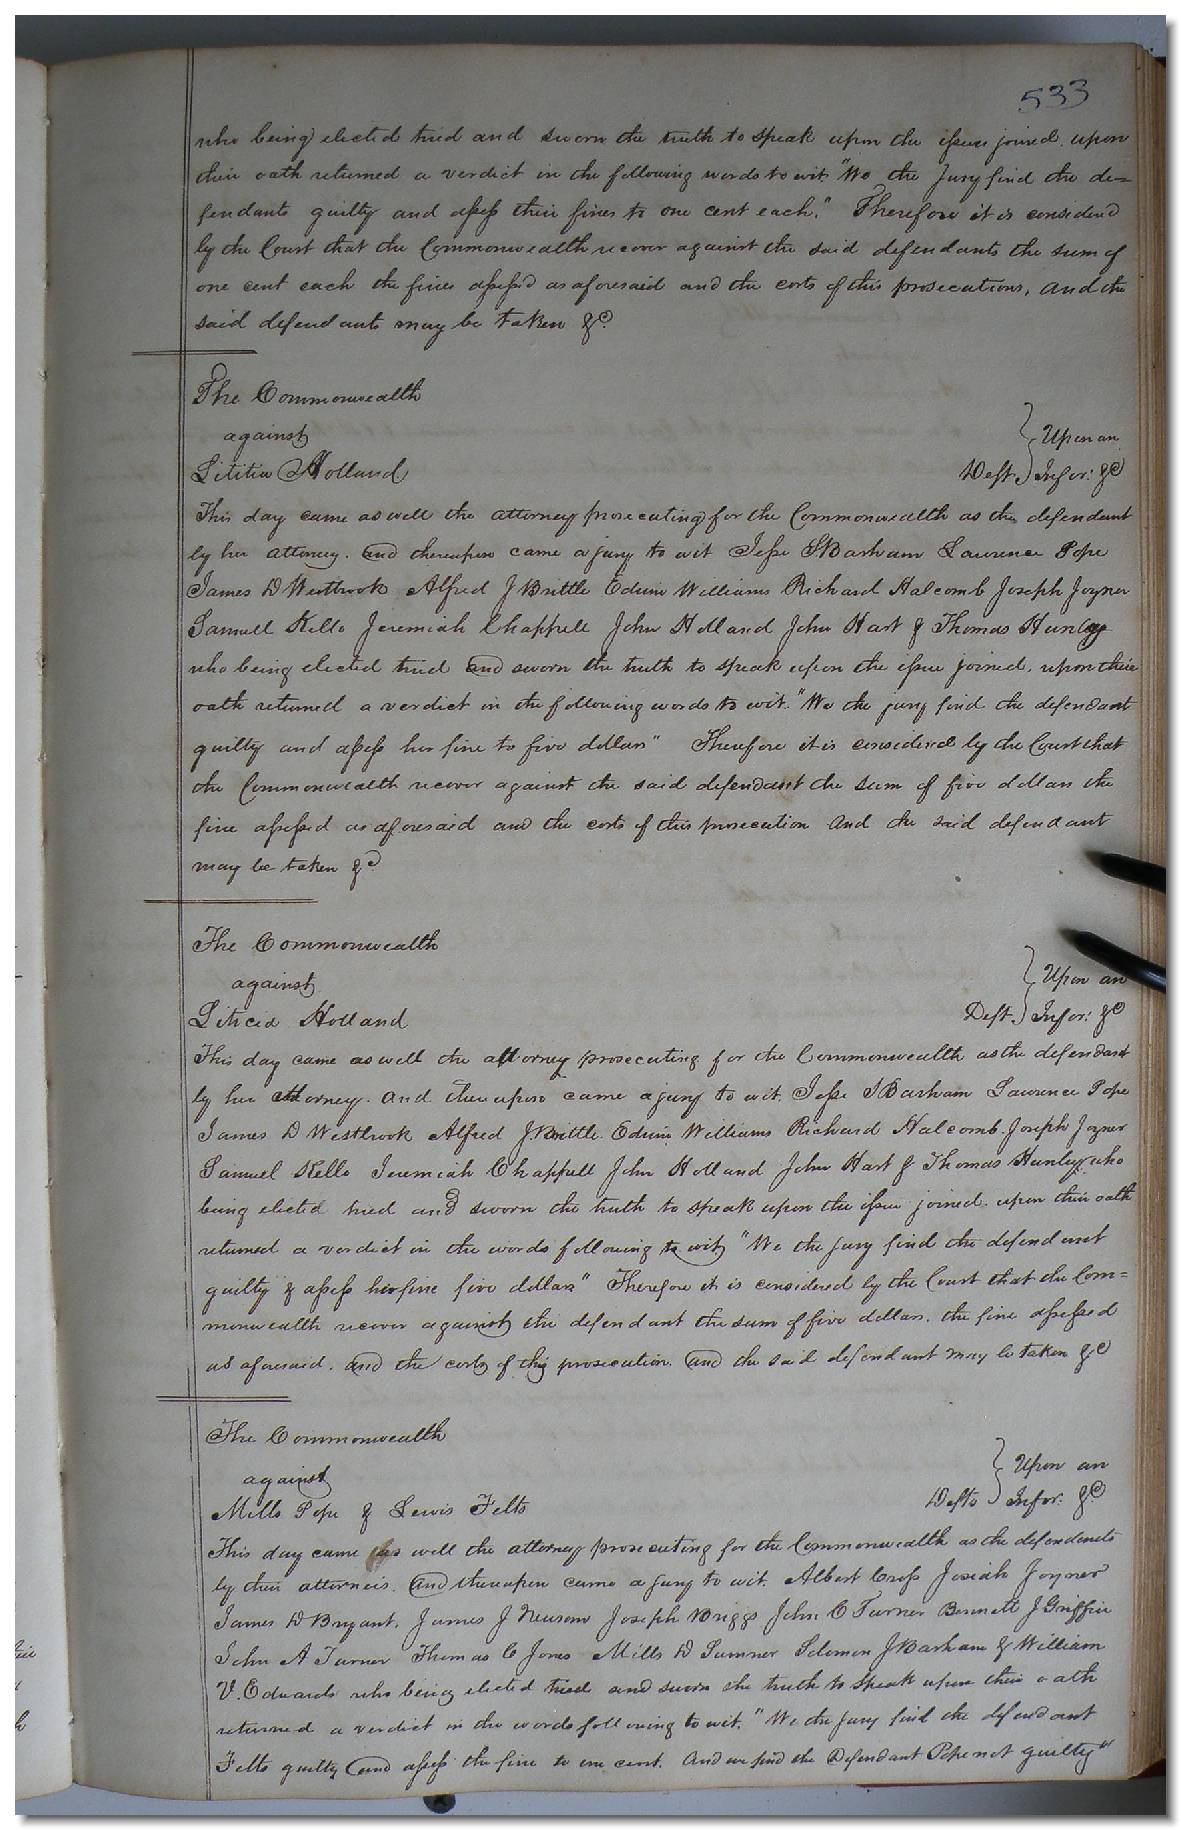 533
who being elected tried and sworn the truth to speak upon the issue joined. upon
their oath returned a verdict in the following words to wit "We the Jury find the de=
fendants guilty and assess their fines to one cent each." Therefore it is considered
by the Court that the Commonwealth recover against the said defendants the sum of
one cent each the fines assessed as aforesaid and the costs of this prosecutions, and the
said defendants may be taken &c.
The Commonwealth
against
Upon an
Lititia Holland
Deft. Infor: &c
This day came as well the attorney prosecuting for the Commonwealth as the defendant
by her attorney. and thereupon came a jury to wit Jesse S Barham Lawrence Pope
James D Westbrook Alfred J Brittle Edwin Williams Richard Halcomb Joseph Joyner
Samuell Kello Jeremiah Chappell John Holland John Hart & Thomas Hunley
who being elected tried and sworn the truth to speak upon the issue joined, upon their
oath returned a verdict in the following words to wit. "We the jury find the defendant
guilty and assess her fine to five dollars" Therefore it is considered by the Court that
the Commonwealth recover against the said defendant the sum of five dollars the
fine assessed as aforesaid and the costs of this prosecution And the said defendant
may be taken &c
The Commonwealth
against
Upon an
Liticia Holland
Deft. Infor: &c
This day came as well the attorney prosecuting for the Commonwealth as the defendant
by her attorney. and thereupon came a jury to wit. Jesse S Barham Lawrence Pope
James D Westbrook Alfred J Brittle Edwin Williams Richard Halcomb Joseph Joyner
Samuel Kello Jeremiah Chappell John Holland John Hart & Thomas Hunley who
being elected tried and sworn the truth to speak upon the issue joined. upon their oath
returned a verdict in the words following to wit, "We the jury find the defendant
guilty & assess her fine five dollars" Therefore it is considered by the Court that the Com=
monwealth recover against the defendant the sum of five dollars. the fine assessed
as aforesaid. and the costs of this prosecution. and the said defendant may be taken &c
The Commonwealth
against
Upon an
Mills Pope & Lewis Felts
Defts Infor: &c
This day came as well the attorney prosecuting for the Commonwealth as the defendents
by their attorneis. and thereupon came a jury to wit. Albert Cross Josiah Joyner
James D Bryant. James J Newsom Joseph Briggs John C Turner Bennett J Griffin
John A Turner Thomas C Jones Mills D Sumner Solomon J Barham & William
V. Edwards who being elected tried and sworn the truth to speak upon their oath
returned a verdict in the words following to wit. "We the jury find the defendant
Felts guilty and assess the fine to one cent. And we find the Defendant Pope not guilty"